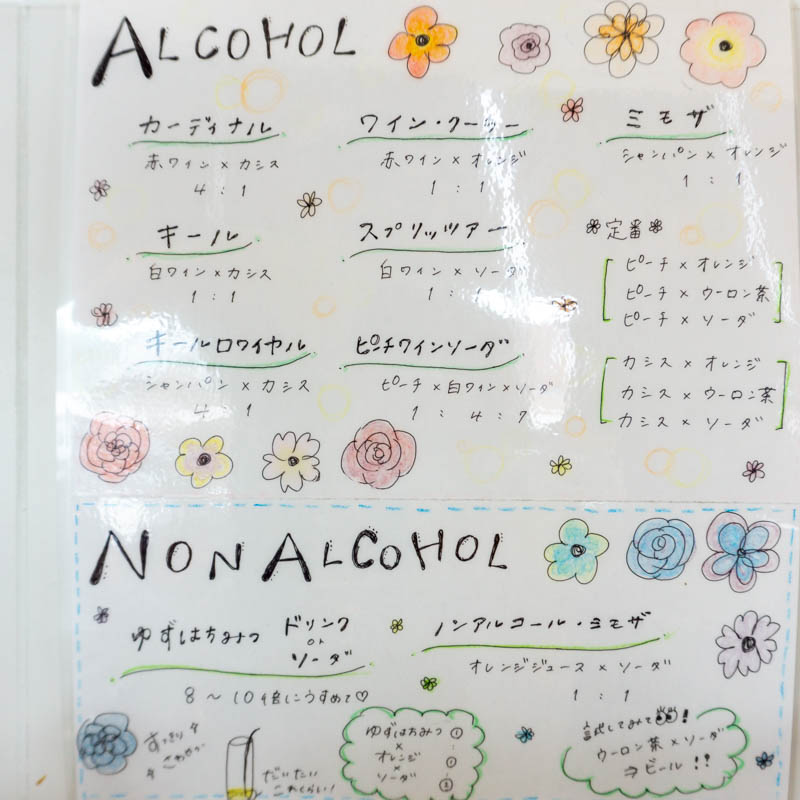 ALCOHOL
カーディナル
赤ワイン×カシス
4:1
ワイン・クーラー
赤ワイン×オレンジ
1:1
ミモザ
シャンパン×オレンジ
1:1
キール
白ワイン×カシス
1:1
スプリッツアー
白ワイン×ソーダ
1:1
定番
ピーチ×オレンジ
ピーチ×ウーロン茶
ピーチ×ソーダ
キールロワイヤル
シャンパン×カシス
4:1
ピーチワインソーダ
ピーチ×白ワイン×ソーダ
1:4:
カシス×オレンジ
カシス×ウーロン茶
カシス×ソーダ
NON ALCOHOL
ゆずはちみつ
ドリンク
or
ソーダ
8～10倍にうすめて♡
ノンアルコール・ミモザ
オレンジジュース×ソーダ
1:1
すっきり
さわやか
だいたい
これくらい!
ゆずはちみつ ①
×
オレンジ
×
ソーダ
試してみて!
ウーロン茶×ソーダ
ヨビール!!